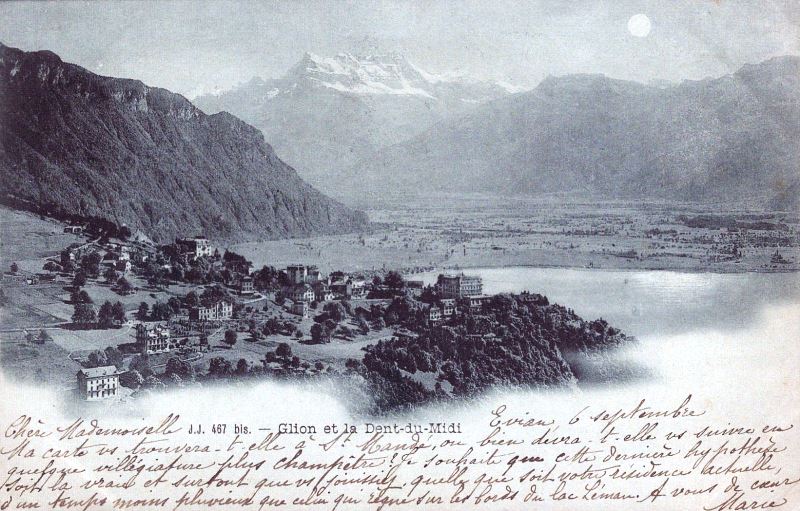 J.J. 467 bis. — Glion et la Dent-du-Midi
Evian, 6 septembre
Chère Mademoiselle
Ma carte vs trouvera-t-elle à St Mandé, ou bien devra-t-elle vs suivre en
quelque villégiature plus champêtre? Je souhaite que cette dernière hypothèse
soit la vraie et surtout que vs jouissiez, quelle que soit votre résidence actuelle,
d'un temps moins pluvieux que celui qui règne sur les bords du lac Léman. A vous de cœur
Marie